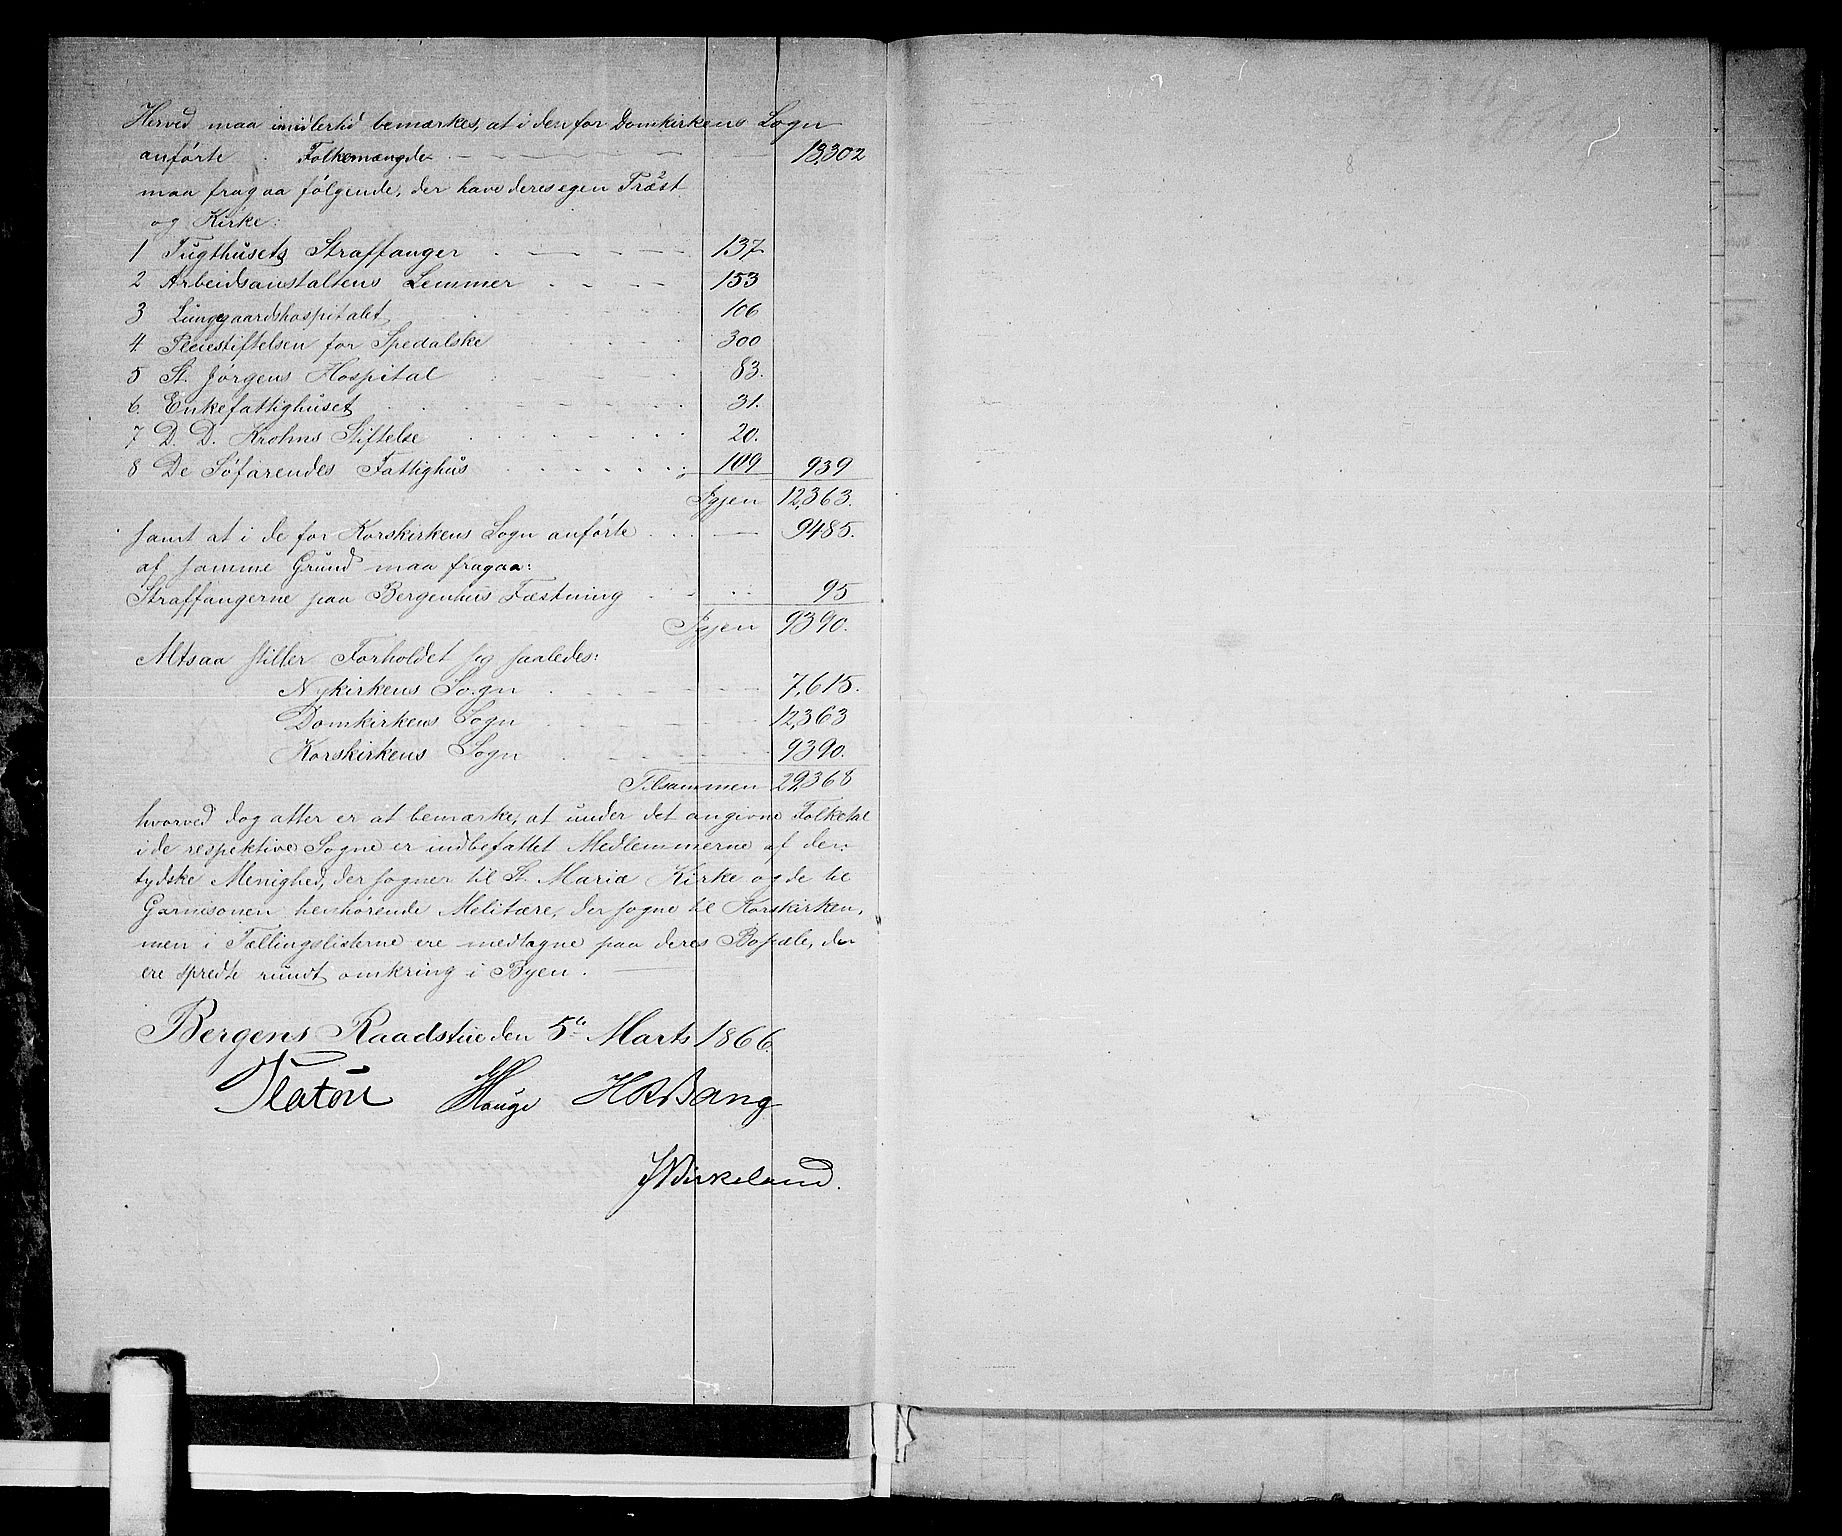 Herved maa imidlertid bemærkes, at i den for Domkirkens Sogn
anførte Folkemængde 13,302
maa fragaa følgende, der have deres egen Præst
og Kirke:
1 Tugthusets Straffanger 137
2 Arbeidsanstaltens Lemmer 153
3 Lungegaardshospitalet 106
4 Pleiestiftelsen for Spedalske 300
5 St. Jørgens Hospital 83.
6. Enkefattighuset 31.
7 D. D. Krohns Stiftelse 20.
8 De Søfarendes Fattighus 109 939
Igjen 12,363.
samt at i de for Korskirkens Sogn anførte 9485.
af samme Grund maa fragaa:
Straffangerne paa Bergenhus Fæstning 95
Igjen 9390.
Altsaa stiller Forholdet sig saaledes:
Nykirkens Sogn 7,615.
Domkirkens Sogn 12,363
Korskirkens Sogn 9390.
Tilsammen 29,368
hvorved dog atter er at bemærke, at under det angivne Folketal
i de respektive Sogne er indbefattet Medlemmerne af den
tydske Menighed, der sogner til St. Mariæ Kirke og de til
Garnisonen henhørende Melitære, der sogne til Korskirken,
men i Tællingslisterne ere medtagne paa deres Bopæle, der
ere spredte rundt omkring i Byen.
Bergens Raadstue den 5te Marts 1866.
Platou Hauge Bang
Birkeland.